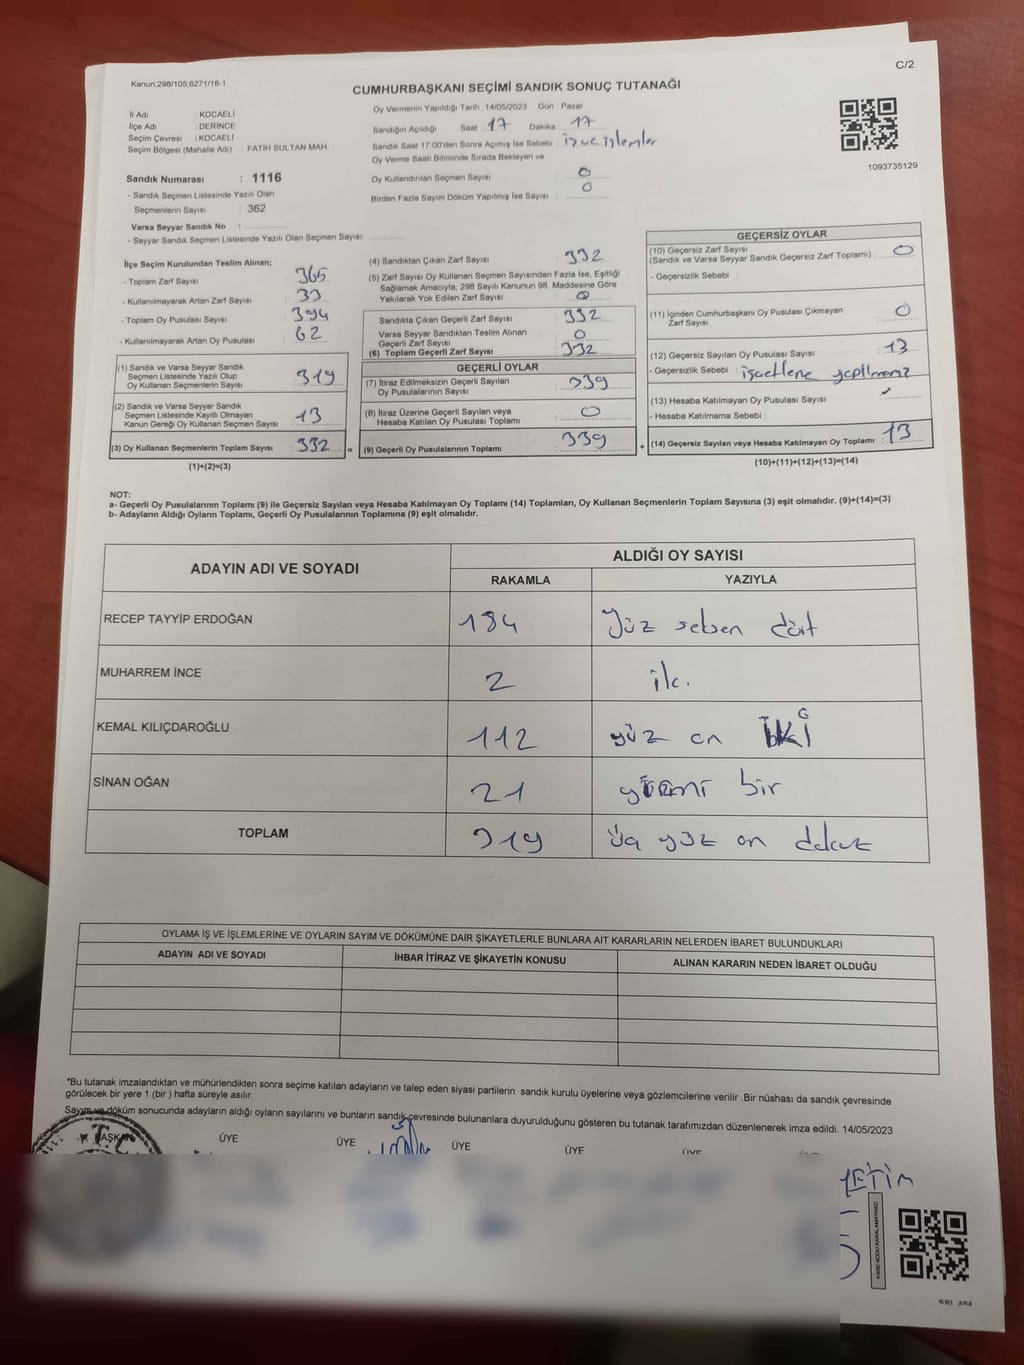 Kanun;298/105;6271/18-1
C/2
CUMHURBAŞKANI SEÇİMİ SANDIK SONUÇ TUTANAĞI
İl Adı : KOCAELİ
İlçe Adı : DERİNCE
Seçim Çevresi : KOCAELİ
Seçim Bölgesi (Mahalle Adı) : FATİH SULTAN MAH
Oy Vermenin Yapıldığı Tarih :14/05/2023 Gün : Pazar
Sandığın Açıldığı Saat 17 Dakika : 17
Sandık Saat 17:00'den Sonra Açımış İse Sebebi : iş ve işlemler
Oy Verme Saati Bitiminde Sırada Bekleyen ve
Oy Kullandırılan Seçmen Sayısı : 0
Birden Fazla Sayım Döküm Yapılmış İse Sayısı : 0
1093735129
Sandık Numarası : 1116
- Sandık Seçmen Listesinde Yazılı Olan
Seçmenlerin Sayısı : 362
Varsa Seyyar Sandık No :
- Seyyar Sandık Seçmen Listesinde Yazılı Olan Seçmen Sayısı:
İlçe Seçim Kurulundan Teslim Alınan;
- Toplam Zarf Sayısı : 365
- Kullanılmayarak Artan Zarf Sayısı : 33
- Toplam Oy Pusulası Sayısı : 394
- Kullanılmayarak Artan Oy Pusulası : 62
(1) Sandık ve Varsa Seyyar Sandık
Seçmen Listesinde Yazılı Olup
Oy Kullanan Seçmenlerin Sayısı : 319
(2) Sandık ve Varsa Seyyar Sandık
Seçmen Listesinde Kayıtlı Olmayan
Kanun Gereği Oy Kullanan Seçmen Sayısı : 13
(3) Oy Kullanan Seçmenlerin Toplam Sayısı : 332 =
(1)+(2)=(3)
(4) Sandıktan Çıkan Zarf Sayısı : 332
(5) Zarf Sayısı Oy Kullanan Seçmen Sayısından Fazla İse, Eşitliği
Sağlamak Amacıyla; 298 Sayılı Kanunun 98. Maddesine Göre
Yakılarak Yok Edilen Zarf Sayısı : 0
Sandıkta Çıkan Geçerli Zarf Sayısı : 332
Varsa Seyyar Sandıktan Teslim Alınan
Geçerli Zarf Sayısı : 0
(6) Toplam Geçerli Zarf Sayısı : 332
GEÇERLİ OYLAR
(7) İtiraz Edilmeksizin Geçerli Sayılan
Oy Pusulalarının Sayısı : 339
(8) İtiraz Üzerine Geçerli Sayılan veya
Hesaba Katılan Oy Pusulası Toplamı : 0
(9) Geçerli Oy Pusulalarının Toplamı : 339 +
GEÇERSİZ OYLAR
(10) Geçersiz Zarf Sayısı
(Sandık ve Varsa Seyyar Sandık Geçersiz Zarf Toplamı) : 0
- Geçersizlik Sebebi :
(11) İçinden Cumhurbaşkanı Oy Pusulası Çıkmayan
Zarf Sayısı : 0
(12) Geçersiz Sayılan Oy Pusulası Sayısı : 13
- Geçersizlik Sebebi :
(13) Hesaba Katılmayan Oy Pusulası Sayısı :
- Hesaba Katılmama Sebebi :
(14) Geçersiz Sayılan veya Hesaba Katılmayan Oy Toplamı : 13
(10)+(11)+(12)+(13)=(14)
NOT:
a- Geçerli Oy Pusulalarının Toplamı (9) ile Geçersiz Sayılan veya Hesaba Katılmayan Oy Toplamı (14) Toplamları, Oy Kullanan Seçmenlerin Toplam Sayısına (3) eşit olmalıdır. (9)+(14)=(3)
b- Adayların Aldığı Oyların Toplamı, Geçerli Oy Pusulalarının Toplamına (9) eşit olmalıdır.
ADAYIN ADI VE SOYADI
ALDIĞI OY SAYISI
RAKAMLA YAZIYLA
RECEP TAYYİP ERDOĞAN 184 Yüz seksen dört
MUHARREM İNCE 2 iki
KEMAL KILIÇDAROĞLU 112 yüz on iKi
SİNAN OĞAN 21 yirmi bir
TOPLAM 319 üç yüz on dokuz
OYLAMA İŞ VE İŞLEMLERİNE VE OYLARIN SAYIM VE DÖKÜMÜNE DAİR ŞİKAYETLERLE BUNLARA AİT KARARLARIN NELERDEN İBARET BULUNDUKLARI
ADAYIN ADI VE SOYADI İHBAR İTİRAZ VE ŞİKAYETİN KONUSU ALINAN KARARIN NEDEN İBARET OLDUĞU
*Bu tutanak imzalandıktan ve mühürlendikten sonra seçime katılan adayların ve talep eden siyasi partilerin sandık kurulu üyelerine veya gözlemcilerine verilir .Bir nüshası da sandık çevresinde
görülecek bir yere 1 (bir ) hafta süreyle asılır.
Sayım ve döküm sonucunda adayların aldığı oyların sayılarını ve bunların sandık çevresinde bulunanlara duyurulduğunu gösteren bu tutanak tarafımızdan düzenlenerek imza edildi. 14/05/2023
BAŞKAN ÜYE ÜYE ÜYE ÜYE ÜYE
T.C.
KARE KODU KARALAMAYINIZ!